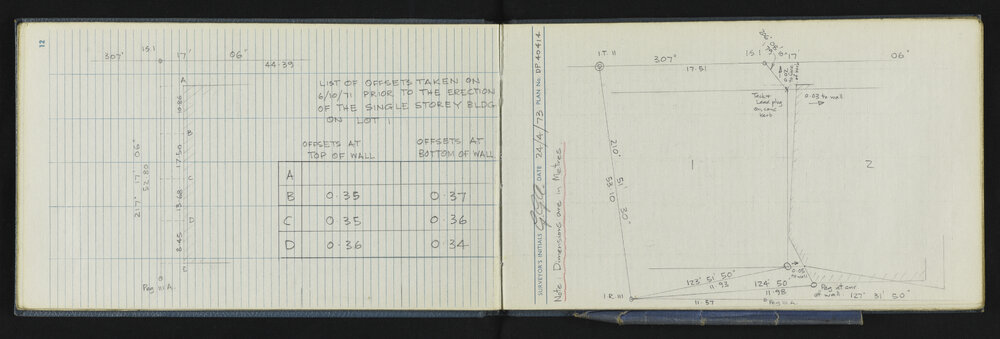 12
307° 15' 17' 06"
44.39
LIST OF OFFSETS TAKEN ON
6/10/71 PRIOR TO THE ERECTION
OF THE SINGLE STOREY BLDG
ON LOT 1
OFFSETS AT TOP OF WALL
OFFSETS AT BOTTOM OF WALL
A
B 0.35 0.37
C 0.35 0.36
D 0.36 0.34
A
9.86
B
17.50
C
13.68
D
8.45
E
217° 17' 06"
52.80
Peg III A
SURVEYOR'S INITIALS DATE 24/4/73 PLAN No. DP 40414
Note: Dimensions are in Metres
I.T. II
307°
17.51
15' 17'
06"
Tack &
Lead plug
on conc
kerb
0.03 to wall
210° 51' 20"
58.10
1
2
I.R. III
123° 51' 50"
11.93
124° 50'
11.98
11.87
Peg III A
0.05
to wall
Peg at cnr
of wall
127° 31' 50"